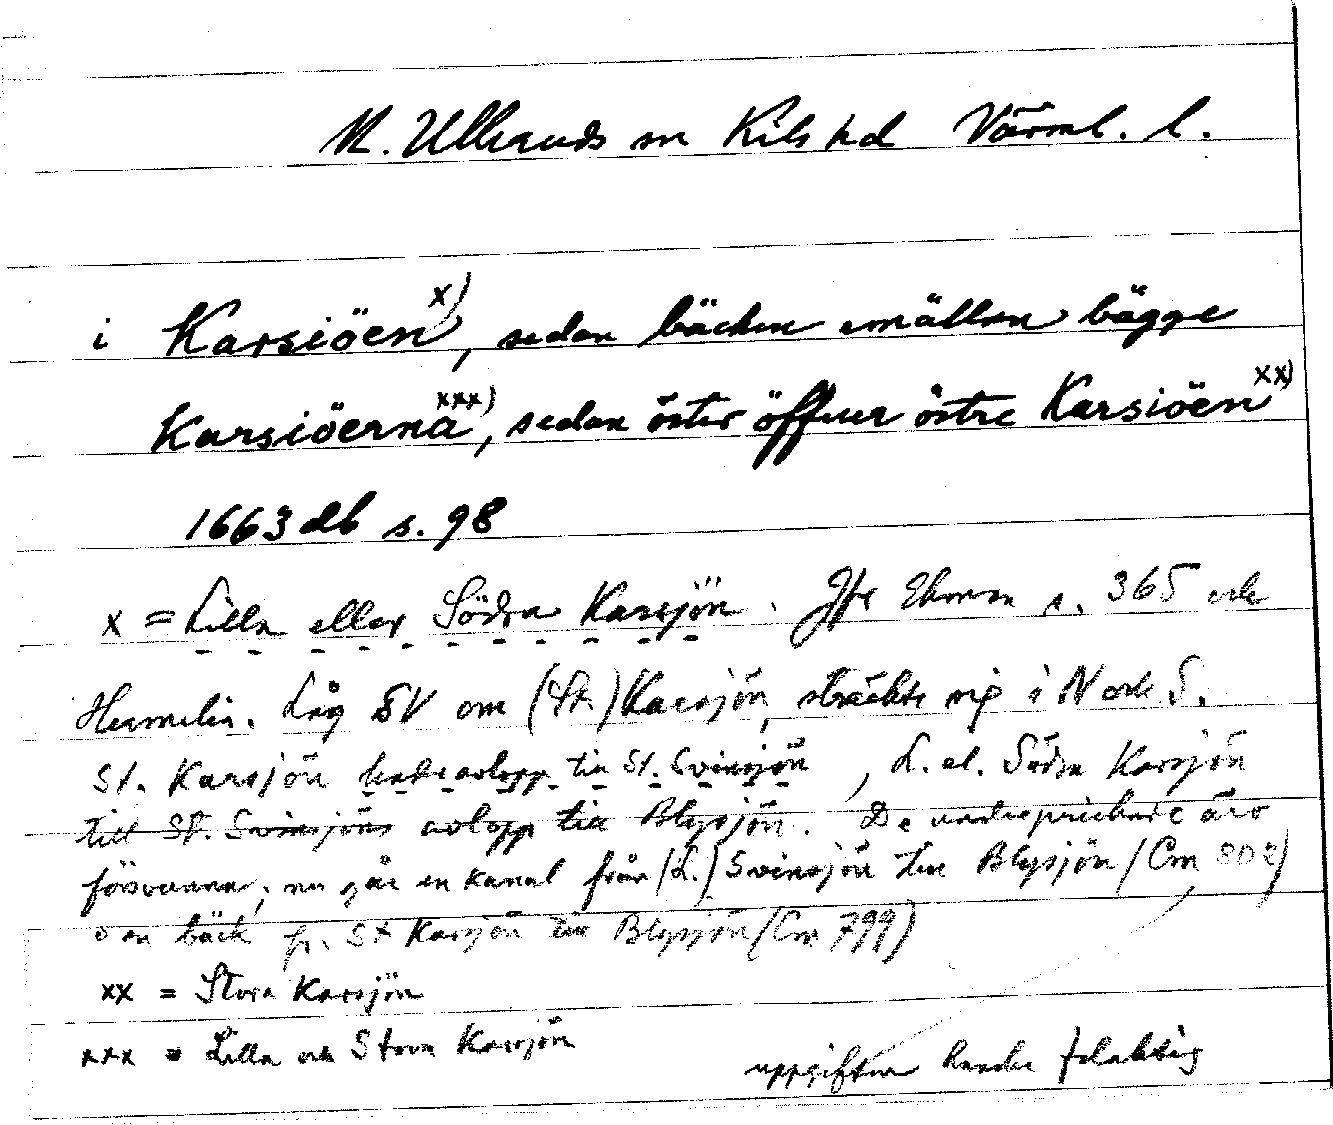 N. Ulleruds sn Kils hd Värml. l.
i Karsiöen x), sedan bäcken emällan bägge
Karsiöerna xxx), sedan öster öffuer östre Karsiöen xx)
1663 db s. 98
x = Lilla eller Södra Karsjön. Jfr Ekman s. 365 och
Hermelin. Låg SV om (St.) Karsjön, sträckte sig i N och S.
St. Karsjön hade avlopp till St. Svinsjön, L. el. Södra Karsjön
till St. Svinsjöns avlopp till Blysjön. De understrukne äro
försvunna; nu går en kanal från (L.) Svinsjön till Blysjön (Cm 802)
o en bäck fr. St Karsjön till Blysjön (Cm 799)
xx = Stora Karsjön
xxx = Lilla och Stora Karsjön
uppgiften kanske felaktig